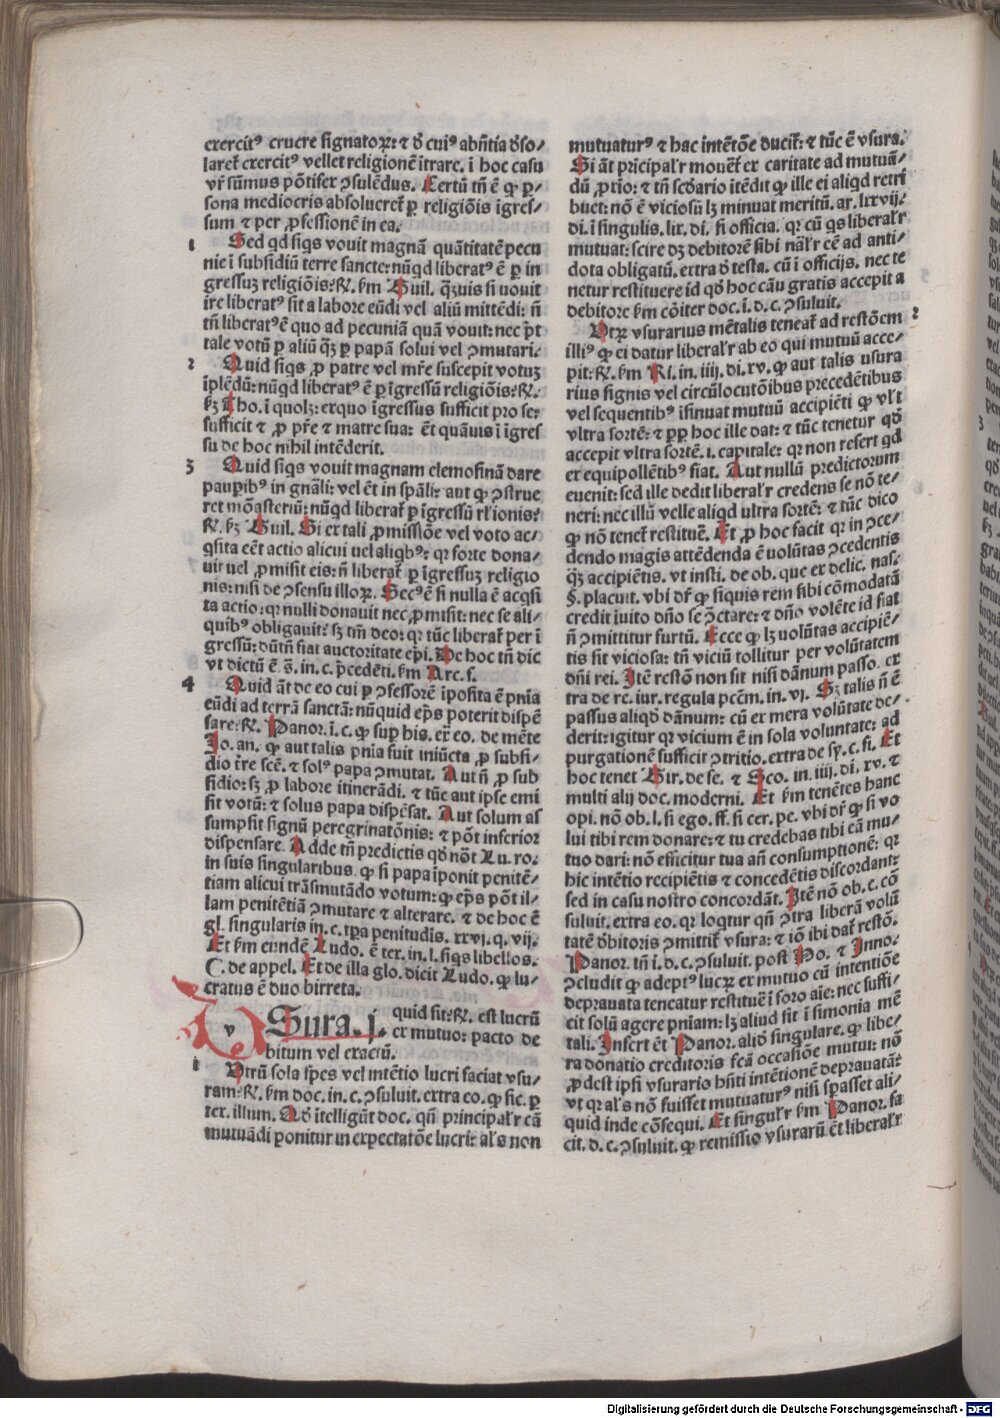 exercitꝰ eruere signatoꝝ: ⁊ ꝟ cuiꝰ abn̄tia ꝺso⸗
laret̃ exercitꝰ vellet religionē ītrare. ī hoc casu
vr̄ sūmus pōtifex ↄsulēdus. Certū tn̄ ē ꝙ ꝑ⸗
sona mediocris absolueret̃ ꝑ religiōis īgres⸗
sum ⁊ per ꝓfessionē in ea.
1 Sed qd siqs vouit magnā quātitatē pecu
nie ī subsidiū terre sancte: nūqd liberatꝰ ē ꝑ in
gressuꝫ religiōis: ꝶ. ẜm Guil. qꝫuis si uouit
ire liberatꝰ sit a labore eūdi vel aliū mittēdi: ñ
tn̄ liberatꝰ ē quo ad pecuniā quā vouit: nec p̄t
tale votū ꝑ aliū qꝫ ꝑ papā solui vel ↄmutari.
2 Quid siqs ꝓ patre vel mr̄e suscepit votuꝫ
īplēdū: nūqd liberatꝰ ē ꝑ īgressū religiōis: ꝶ.
ẜꝫ Tho. ī quolꝫ: exquo īgressus sufficit pro se:
sufficit ⁊ ꝓ pr̄e ⁊ matre sua: ēt quāuis ī īgres
su de hoc nihil intēderit.
3 Quid siqs vouit magnam elemosinā dare
pauꝑibꝰ in gnāli: vel ēt in spāli: aut ꝙ ↄstrue
ret mōasteriū: nūqd liberat̃ ꝑ īgressū rl̓ionis:
ꝶ. ẜꝫ Guil. Si ex tali ꝓmissiōe vel voto ac⸗
qsita eēt actio alicui uel aliqbꝰ: qꝛ forte dona⸗
uit uel ꝓmisit eis: ñ liberat̃ ꝑ īgressuꝫ religio
nis: nisi de ↄsensu illoꝝ. Seccꝰ ē si nulla ē acqsi
ta actio: qꝛ nulli donauit nec ꝓmisit: nec se ali⸗
quibꝰ obligauit: sꝫ tm̄ deo: qꝛ tūc liberat̃ per ī
gressū: dūtn̄ fiat auctoritate ep̄i. De hoc tn̄ dic
vt dictū ē. s̄. in. c. p̄cedēti. ẜm Arc. s.
4 Quid āt de eo cui ꝑ ↄfessorē īposita ē pn̄ia
eūdi ad terrā sanctā: nūquid ep̄s poterit dispē
sare: ꝶ. Panor. ī. c. ꝙ suꝑ his. ex̄ eo. de mēte
Jo. an. ꝙ aut talis pn̄ia fuit iniūcta ꝓ subsi⸗
dio t̄re scē. ⁊ solꝰ papa ↄmutat. Aut ñ ꝓ sub
sidio: sꝫ ꝓ labore itinerādi. ⁊ tūc aut ipse emi
sit votū: ⁊ solus papa dispēsat. Aut solum as
sumpsit signū peregrinatōnis: ⁊ pōt inferior
dispensare. Adde tn̄ predictis qꝺ nōt Lu. ro.
in suis singularibus. ꝙ si papa īponit penitē⸗
tiam alicui trāsmutādo votum: ꝙ ep̄s pōt il⸗
lam penitētiā ↄmutare ⁊ alterare. ⁊ de hoc ē
gl. singularis in. c. tp̄a penitudis. xxvj. q. vij.
Et ẜm eundē Ludo. ē tex. in. l. siqs libellos.
C. de appel. Et de illa glo. dicit Ludo. ꝙ lu⸗
cratus ē duo birreta.
v Usura. j. quid sit: ꝶ. est lucrū
ex mutuo: pacto de
bitum vel exactū.
1 Utrū sola spes vel intētio lucri faciat vsu⸗
ram: ꝶ. ẜm doc. in. c. ↄsuluit. extra eo. ꝙ sic. ꝑ
tex. illum. Qꝺ ītelligūt doc. qn̄ principalr̄ cā
mutuādi ponitur in expectatōe lucri: al̓s non
mutuaturꝰ ⁊ hac intētōe ducit̃: ⁊ tūc ē vsura.
Si āt pricipal̓r mouet̃ ex caritate ad mutuā⸗
dū ꝓxīo: ⁊ tn̄ scꝺario itēdit ꝙ ille ei aliqd retri
buet: nō ē viciosū lꝫ minuat meritū. ar. lxxvij.
di. ī singulis. lix. di. si officia. qꝛ cū qs liberal̓r
mutuat: scire dꝫ debitorē sibi nāl̓r eē ad anti⸗
dota obligatū. extra ꝺ testa. cū ī officijs. nec te
netur restituere id qꝺ hoc cāu gratis accepit a
debitore ẜm cōiter doc. ī. d. c. ↄsuluit.
2 Utꝝ vsurarius mētalis teneat̃ ad restōem
illiꝰ ꝙ ei datur liberal̓r ab eo qui mutuū acce⸗
pit: ꝶ. ẜm Ri. in. iiij. di. xv. ꝙ aut talis usura
rius signis vel circūlocutōibus precedētibus
vel sequentibꝰ īsinuat mutuū accipiēti ꝙ vl̓t
vltra sortē: ⁊ ꝓpꝑ hoc ille dat: ⁊ tūc tenetur qꝺ
accepit vltra sortē. ī. capitale: qꝛ non refert qd
ex equipollētibꝰ fiat. Aut nullū predictorum
euenit: sed ille dedit liberal̓r credens se nō te⸗
neri: nec illū velle aliqd ultra sortē: ⁊ tūc dico
ꝙ nō tenet̃ restituē. Et ꝓ hoc facit qꝛ in ↄce⸗
dendo magis attēdenda ē uolūtas ↄcedentis
qꝫ accipiētis. vt insti. de ob. que ex delic. nas.
§. placuit. vbi dr̄ ꝙ siquis rem sibi cōmodatā
credit īuito dn̄o se ↄ̃ctare: ⁊ dn̄o volēte id fiat
ñ ↄmittitur furtū. Ecce ꝙ lꝫ uolūtas accipiē⸗
tis sit viciosa: tn̄ viciū tollitur per volūtatem
dn̄i rei. Itē restō non fit nisi dānum passo. ex
tra de re. iur. regula pcēm. in. vj. Sꝫ talis ñ ē
passus aliqꝺ dānum: cū ex mera volūtate de⸗
derit: igitur qꝛ vicium ē in sola voluntate: ad
purgationē sufficit ↄtritio. extra de sy. c. fi. Et
hoc tenet Gir. de se. ⁊ Sco. in. iiij. di. xv. ⁊
multi alij doc. moderni. Et ẜm tenētes hanc
opi. nō ob. l. si ego. ff. si cer. pe. vbi dr̄ ꝙ si vo
lui tibi rem donare: ⁊ tu credebas tibi eā mu⸗
tuo dari: nō efficitur tua an̄ consumptionē: qꝛ
hic intētio recipiētis ⁊ concedētis discordant:
sed in casu nostro concordāt. Itē nō ob. c. cō
suluit. extra eo. qꝛ loqtur qn̄ ↄ̃tra liberā volū
tatē ꝺbitoris ↄmittit̃ vsura: ⁊ iō ibi dat̃ restō.
Panor. tn̄ ī. d. c. ↄsuluit. post Ho. ⁊ Inno.
ↄcludit ꝙ adeptꝰ lucꝝ ex mutuo cū intentiōe
deprauata teneatur restituē ī foro aīe: nec suffi⸗
cit solū agere pniam: lꝫ aliud sit ī simonia mē
tali. Insert ēt Panor. aliꝺ singulare. ꝙ libe⸗
ra donatio creditoris fcā occasiōe mutui: nō
ꝓdest ipsi vsurario hn̄ti intētionē deprauatā:
vt qꝛ al̓s nō fuisset mutuaturꝰ nisi sꝑasset ali⸗
quid inde cōsequi. Et singul̓r ẜm Panor. fa
cit. d. c. ↄsuluit. ꝙ remissio vsurarū ēt liberal̓r
Digitalisierung gefördert durch die Deutsche Forschungsgemeinschaft - DFG